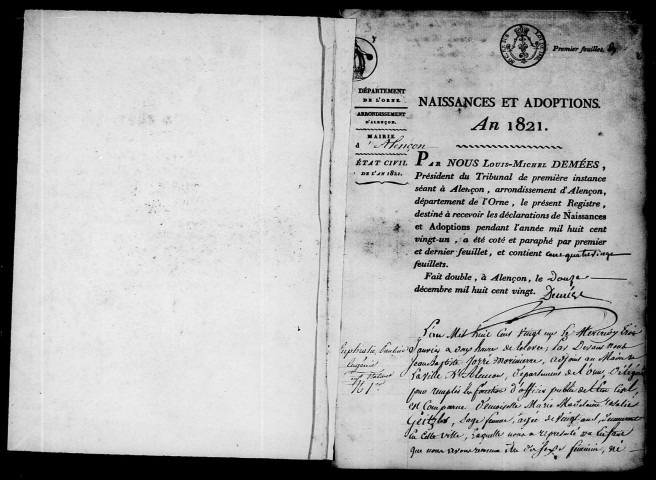 Premier feuillet.
DÉPARTEMENT
DE L'ORNE.
ARRONDISSEMENT
D'ALENÇON.
MAIRIE
d'Alençon
ÉTAT CIVIL
DE L'AN 1821.
NAISSANCES ET ADOPTIONS.
An 1821.
PAR NOUS LOUIS-MICHEL DEMÉES,
Président du Tribunal de première instance
séant à Alençon, arrondissement d'Alençon,
département de l'Orne, le présent Registre,
destiné à recevoir les déclarations de Naissances
et Adoptions pendant l'année mil huit cent
vingt-un, a été coté et paraphé par premier
et dernier feuillet, et contient cent quatre vingt
feuillets.
Fait double, à Alençon, le Douze
décembre mil huit cent vingt. Demées
L'an Mil huit cent vingt un le
Janvier à onze heures de
Jean Baptiste adjoint au Maire de
la ville d'Alençon, Département de l'Orne, Délégué
pour remplir les fonctions d'officier public de l'état civil
est Comparue Demoiselle Marie Madelaine
Sage femme, âgée de vingt ans, demeurant
en cette ville, laquelle nous a représenté un Enfant
que nous avons reconnu être du sexe féminin, né
Eugénie
N.o 1er